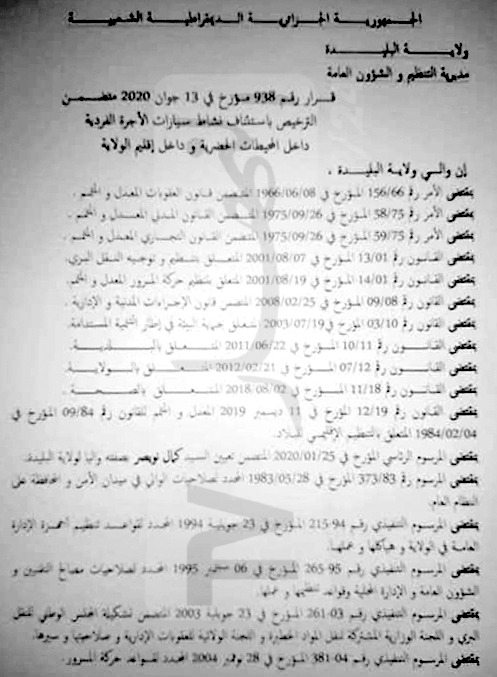 الجمهورية الجزائرية الديمقراطية الشعبية
ولاية البليدة
مديرية التنظيم و الشؤون العامة
قرار رقم 938 مؤرخ في 13 جوان 2020 متضمن
الترخيص باستئناف نشاط سيارات الأجرة الفردية
داخل المحيطات الحضرية و داخل إقليم الولاية
إن والي ولاية البليدة .
بمقتضى الأمر رقم 156/66 المؤرخ في 1966/06/08 المتضمن قانون العقوبات المعدل و المتمم .
بمقتضى الأمر رقم 58/75 المؤرخ في 1975/09/26 المتضمن القانون المدني المعدل و المتمم .
بمقتضى الأمر رقم 59/75 المؤرخ في 1975/09/26 المتضمن القانون التجاري المعدل و المتمم .
بمقتضى القانون رقم 13/01 المؤرخ في 2001/08/07 المتعلق بتنظيم و توجيه النقل البري.
بمقتضى القانون رقم 14/01 المؤرخ في 2001/08/19 المتعلق بتنظيم حركة المرور المعدل و المتمم.
بمقتضى القانون رقم 09/08 المؤرخ في 2008/02/25 المتضمن قانون الإجراءات المدنية و الإدارية .
بمقتضى القانون رقم 03/10 المؤرخ في 2003/07/19 المتعلق بحماية البيئة في إطار التنمية المستدامة.
بمقتضى القانون رقم 10/11 المؤرخ في 2011/06/22 المتعلق بالبلدية.
بمقتضى القانون رقم 07/12 المؤرخ في 2012/02/21 المتعلق بالولاية.
بمقتضى القانون رقم 11/18 المؤرخ في 2018/08/02 المتعلق بالصحة .
بمقتضى القانون رقم 12/19 المؤرخ في 11 ديسمبر 2019 المعدل و المتمم للقانون رقم 09/84 المؤرخ في
1984/02/04 المتعلق بالتنظيم الإقليمي للبلاد.
بمقتضى المرسوم الرئاسي المؤرخ في 2020/01/25 المتضمن تعيين السيد كمال نويصر بصفته واليا لولاية البليدة.
بمقتضى المرسوم رقم 373/83 المؤرخ في 1983/05/28 المحدد لصلاحيات الوالي في ميدان الأمن و المحافظة على
النظام العام.
بمقتضى المرسوم التنفيذي رقم 94-215 المؤرخ في 23 جويلية 1994 المحدد لقواعد تنظيم أجهزة الإدارة
العامة في الولاية و هياكلها و عملها.
بمقتضى المرسوم التنفيذي رقم 95-265 المؤرخ في 06 سبتمبر 1995 المحدد لصلاحيات مصالح التقنين و
الشؤون العامة و الإدارة المحلية وقواعد تنظيمها و عملها.
بمقتضى المرسوم التنفيذي رقم 03-261 المؤرخ في 23 جويلية 2003 المتضمن تشكيلة المجلس الوطني للنقل
البري و اللجنة الوزارية المشتركة لنقل المواد الخطيرة و اللجنة الولائية للعقوبات الإدارية و صلاحيتها و سيرها.
بمقتضى المرسوم التنفيذي رقم 04-381 المؤرخ في 28 نوفمبر 2004 المحدد لقواعد حركة المرور.
TV